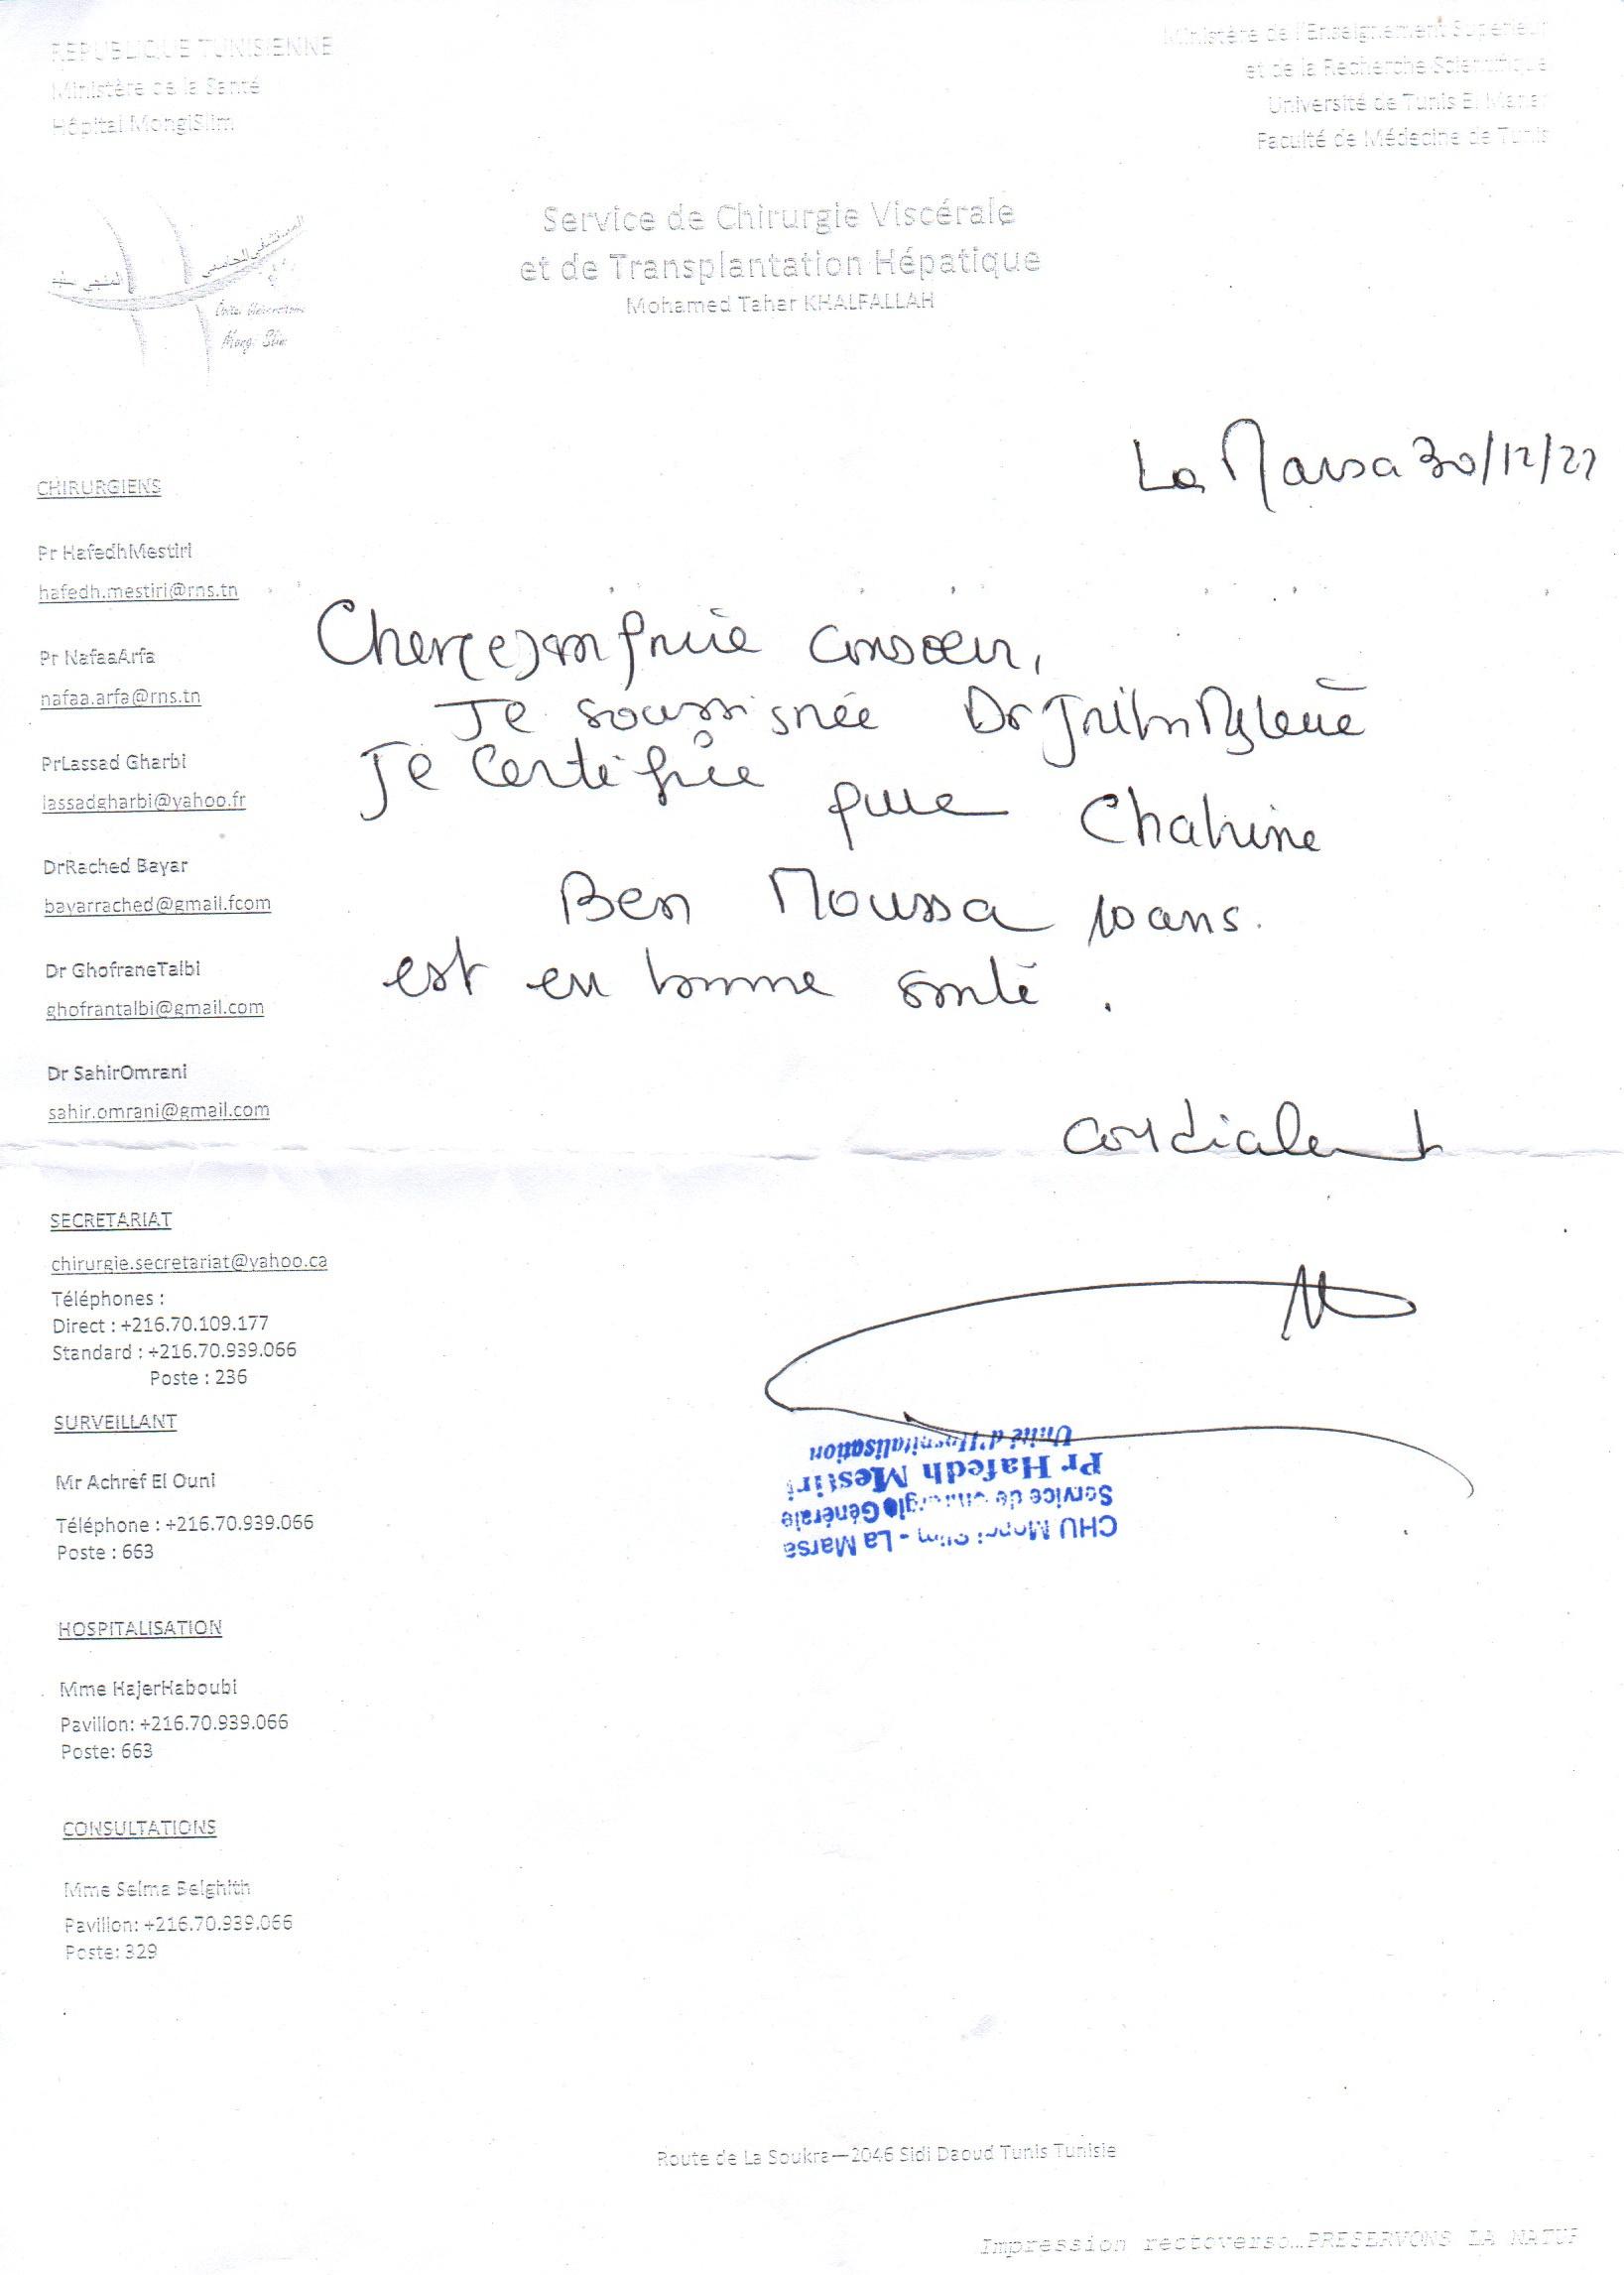 REPUBLIQUE TUNISIENNE
Ministère de la Santé
Hôpital MongiSlim
Ministère de l'Enseignement Supérieur
et de la Recherche Scientifique
Université de Tunis El Manar
Faculté de Médecine de Tunis
Service de Chirurgie Viscérale
et de Transplantation Hépatique
Mohamed Taher KHALFALLAH
المنجي سليم
المستشفى الجامعي
Mongi Slim
La Marsa 30/12/22
CHIRURGIENS
Pr HafedhMestiri
hafedh.mestiri@rns.tn
Pr NafaaArfa
nafaa.arfa@rns.tn
PrLassad Gharbi
lassadgharbi@yahoo.fr
DrRached Bayar
bayarrached@gmail.fcom
Dr GhofraneTalbi
ghofrantalbi@gmail.com
Dr SahirOmrani
sahir.omrani@gmail.com
Cher(e) confrère consoeur,
Je soussignée Dr
Je certifie que Chahine
Ben Moussa 10 ans.
est en bonne santé.
cordialement
SECRETARIAT
chirurgie.secretariat@yahoo.ca
Téléphones :
Direct : +216.70.109.177
Standard : +216.70.939.066
Poste : 236
SURVEILLANT
Mr Achref El Ouni
Téléphone : +216.70.939.066
Poste : 663
HOSPITALISATION
Mme HajerHaboubi
Pavillon: +216.70.939.066
Poste: 663
CONSULTATIONS
Mme Selma Belghith
Pavillon: +216.70.939.066
Poste: 329
CHU Mongi Slim - La Marsa
Service de Chirurgie Générale
Pr Hafedh Mestiri
Unité d'Hospitalisation
Route de La Soukra—2046 Sidi Daoud Tunis Tunisie
Impression rectoverso…PRESERVONS LA NATUR